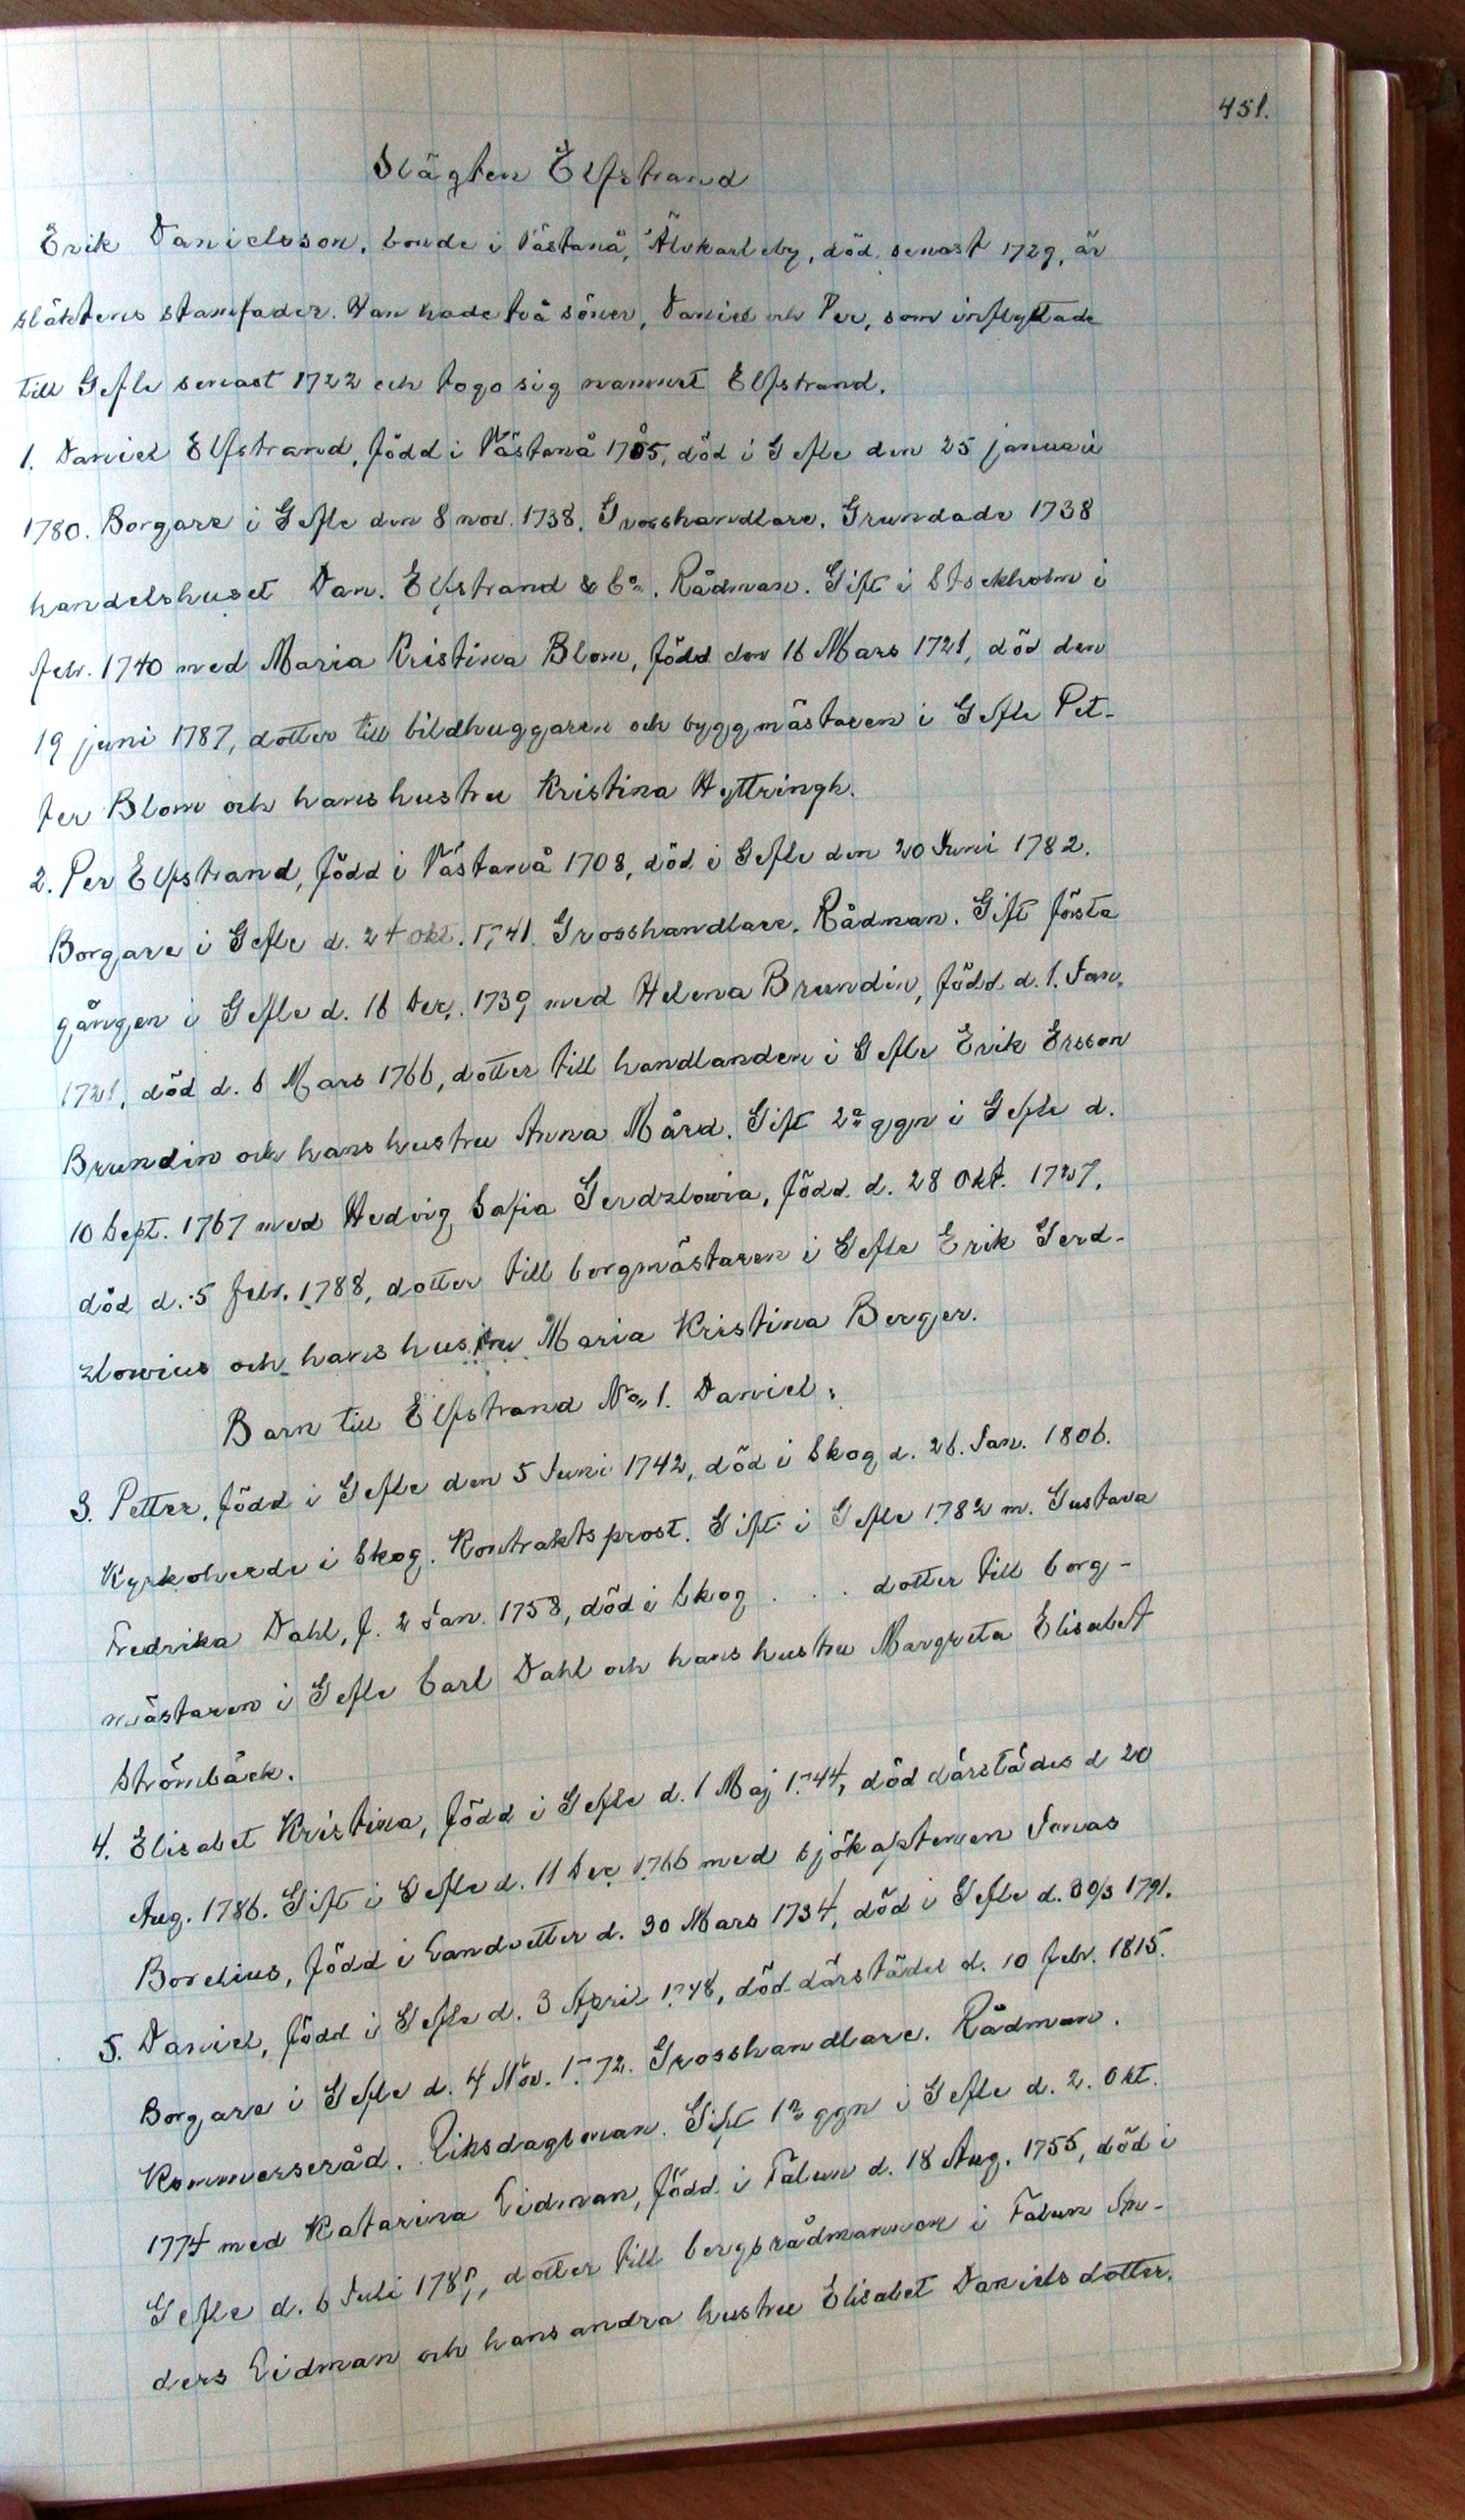 451.
Slägten Elfstrand
Erik Danielsson, bonde i Västanå, Älvkarleby, död senast 1729, är
släktens stamfader. Han hade två söner, Daniel och Per, som inflyttade
till Gefle senast 1722 och togo sig namnet Elfstrand.
1. Daniel Elfstrand, född i Västanå 1705, död i Gefle den 25 januari
1780. Borgare i Gefle den 8 nov. 1738. Grosshandlare. Grundade 1738
handelshuset Dan. Elfstrand & Co. Rådman. Gift i Stockholm i
febr. 1740 med Maria Kristina Blom, född den 16 Mars 1721, död den
19 juni 1787, dotter till bildhuggaren och byggmästaren i Gefle Pet-
ter Blom och hans hustru Kristina Hyttringh.
2. Per Elfstrand, född i Västanå 1708, död i Gefle den 20 Juni 1782.
Borgare i Gefle d. 24 okt. 1741. Grosshandlare. Rådman. Gift första
gången i Gefle d. 16 Dec. 1739 med Helena Brundin, född d. 1. Jan.
1721, död d. 6 Mars 1766, dotter till handlanden i Gefle Erik Ersson
Brundin och hans hustru Anna Mård. Gift 2a ggn i Gefle d.
10 Sept. 1767 med Hedvig Sofia Gerdzlovia, född d. 28 Okt. 1727,
död d. 5 febr. 1788, dotter till borgmästaren i Gefle Erik Gerd-
zlovius och hans hustru Maria Kristina Berger.
Barn till Elfstrand No 1. Daniel:
3. Petter, född i Gefle den 5 Juni 1742, död i Skog d. 26. Jan. 1806.
Kyrkoherde i Skog. Kontraktsprost. Gift i Gefle 1782 m. Gustava
Fredrika Dahl, f. 2 Jan. 1758, död i Skog . . . dotter till borg-
mästaren i Gefle Carl Dahl och hans hustru Margreta Elisabet
Strömbäck.
4. Elisabet Kristina, född i Gefle d. 1 Maj 1744, död därstädes d 20
Aug. 1786. Gift i Gefle d. 11 Dec 1766 med sjökaptenen Jonas
Borelius, född i Landvetter d. 30 Mars 1734, död i Gefle d. 30/3 1791.
5. Daniel, född i Gefle d. 3 April 1748, död därstädes d. 10 febr. 1815.
Borgare i Gefle d. 4 Nov. 1772. Grosshandlare. Rådman.
Kommerseråd. Riksdagsman. Gift 1a ggn i Gefle d. 2. Okt.
1774 med Katarina Lidman, född i Falun d. 18 Aug. 1755, död i
Gefle d. 6 Juli dotter till bergsrådmannen i Falun An-
ders Lidman och hans andra hustru Elisabet Danielsdotter.